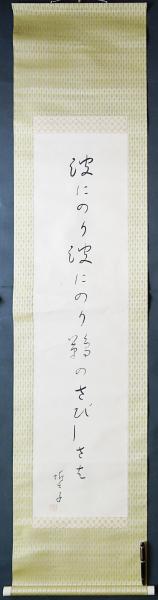 波にのり波にのり鵜のさびしさは
誓子